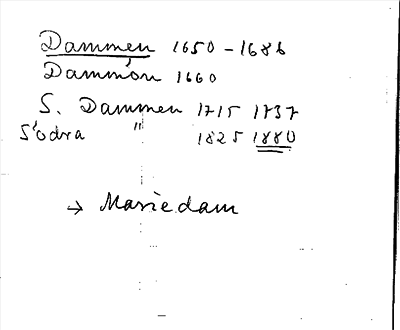 Dammen 1650-1686
Dammön 1660
S. Dammen 1715 1737
Södra " 1825 1880
→ Mariedam